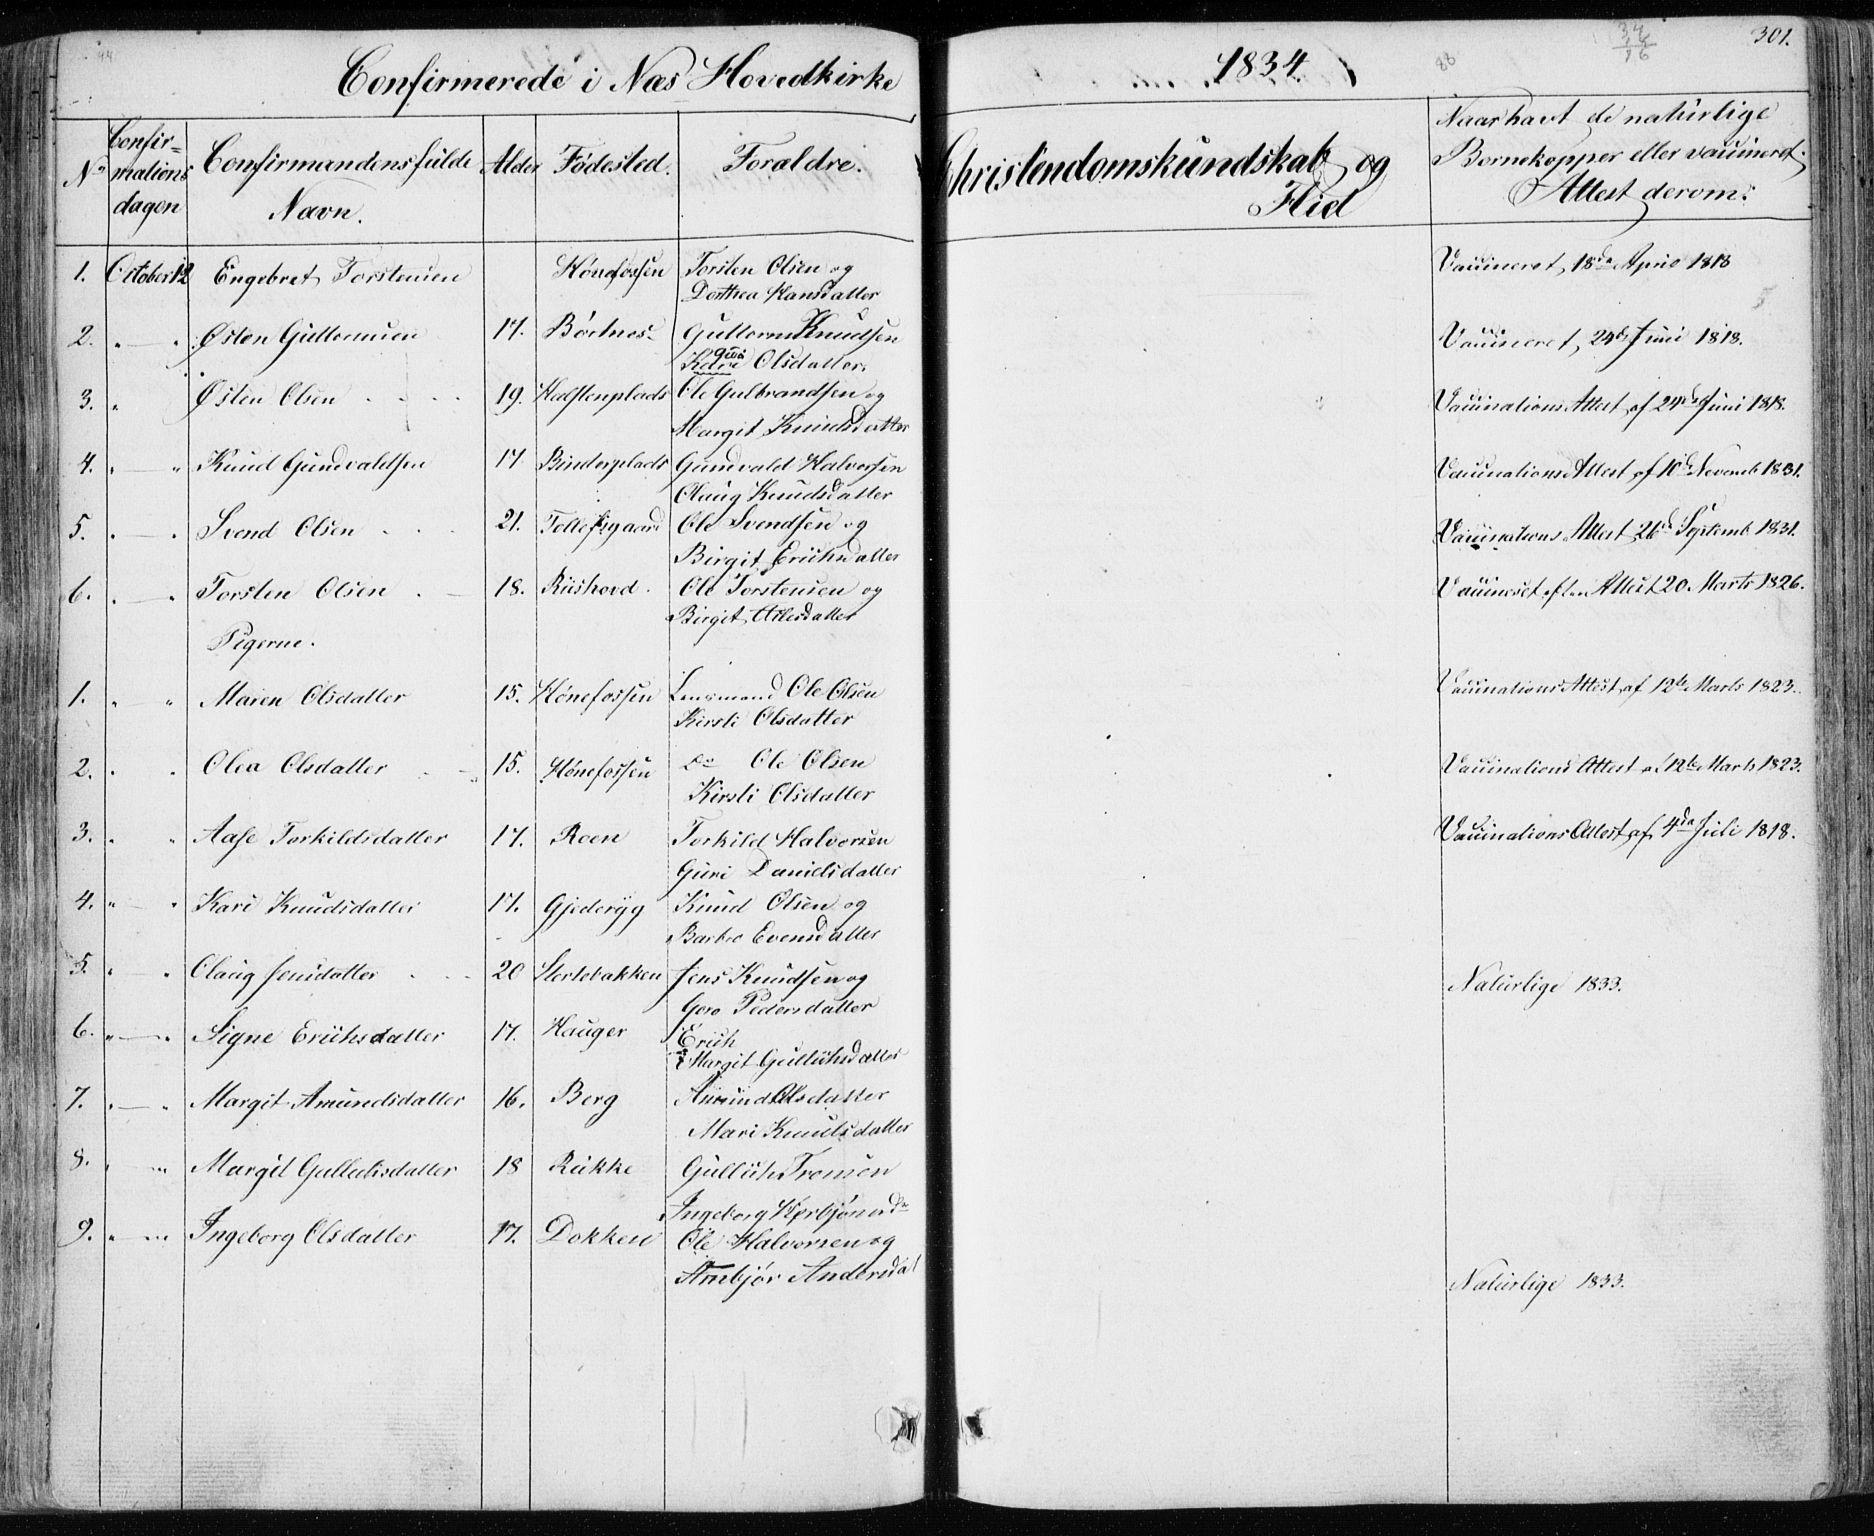 Confirmerede i Næs Hovedkirke 1834. 301.
No Confirmations dagen Confirmandens fulde Navn. Alder Fødested. Forældre. Christendomskundskab og Flid Naar havt de naturlige Bornekopper eller vaccineret; Attest derom.
1. October 12 Engebret Torstensen Hönefossen Torsten Olsen og Vaccineret, 18de April 1818
Dorthea Hansdatter
2. " — " Østen Guttormsen 17. Börtnes Guttorm Knudsen Vaccineret, 24de Juni 1818.
Olsdatter
3. " Østen Olsen 19. Halstenplads Ole Gulbrandsen og Vaccinations Attest af 24de Juni 1818.
Margit Knudsdatter
4. " — " Knud Gundvaldsen 17 Binderplads Gundvald Halvorsen Vaccinations Attest af 10de Novemb 1831.
Olaug Knudsdatter
5. " — " Svend Olsen 21. Tollefsgaard Ole Svendsen og Vaccinations Attest 26de Septemb 1831.
Birgit Erichsdatter
6. " — " Torsten Olsen 18. Riishovd. Ole Torstensen og Vaccineret efter Attest 20 Marts 1826.
Birgit Atlesdatter
Pigerne.
1. " — " Maren Olsdatter 15. Hönefossen Lensmand Ole Olsen Vaccinations Attest af 12te Marts 1823.
Kirsti Olsdatter
2. " " Olea Olsdatter 15. Hönefossen Do Ole Olsen Vaccinations Attest af 12te Marts 1823.
Kirsti Olsdatter
3. " " Aase Torkildsdatter 17. Roen Torkild Halvorsen Vaccinations Attest af 4de Juli 1818.
Guri Danielsdatter
4. " — " Kari Knudsdatter 17. Gjederyg Knud Olsen og
Barbro Evensdatter
5. " — " Olaug Jensdatter 20 Stortebakken Jens Knudsen og Naturlige 1833.
Goro Pedersdatter
6. " — " Signe Erichsdatter 17. Hauger Erich
Margit Gulliksdatter
7. " — " Margit Amundsdatter 16. Berg Amund Olsdatter
Mari Knudsdatter
8. " — " Margit Gulliksdatter 18 Rukke Gullik Tromon
Ingeborg
9. " — " Ingeborg Olsdatter 17. Dokken Ole Halvorsen og
Ambjör Andersdat Naturlige 1833.